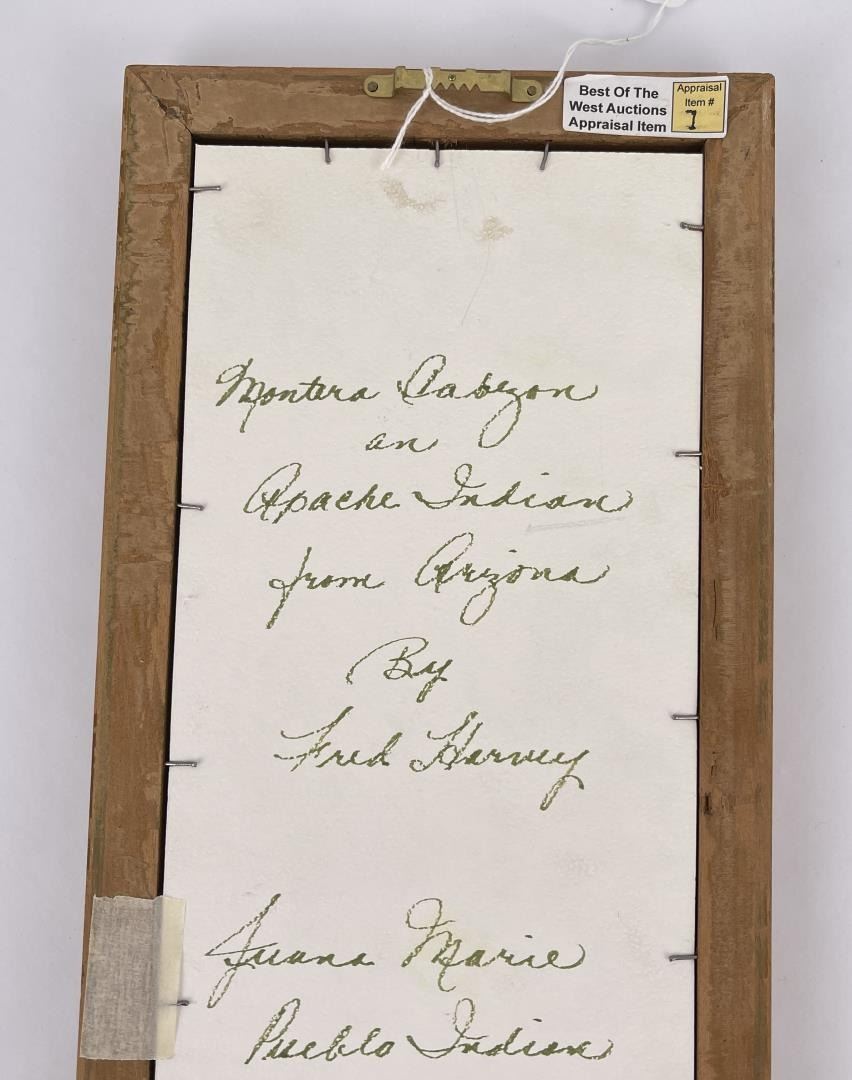 Best Of The
West Auctions
Appraisal Item
Appraisal
Item #
7
Montera Cabezon
an
Apache Indian
from Arizona
By
Fred Harvey
Juana Marie
Pueblo Indian